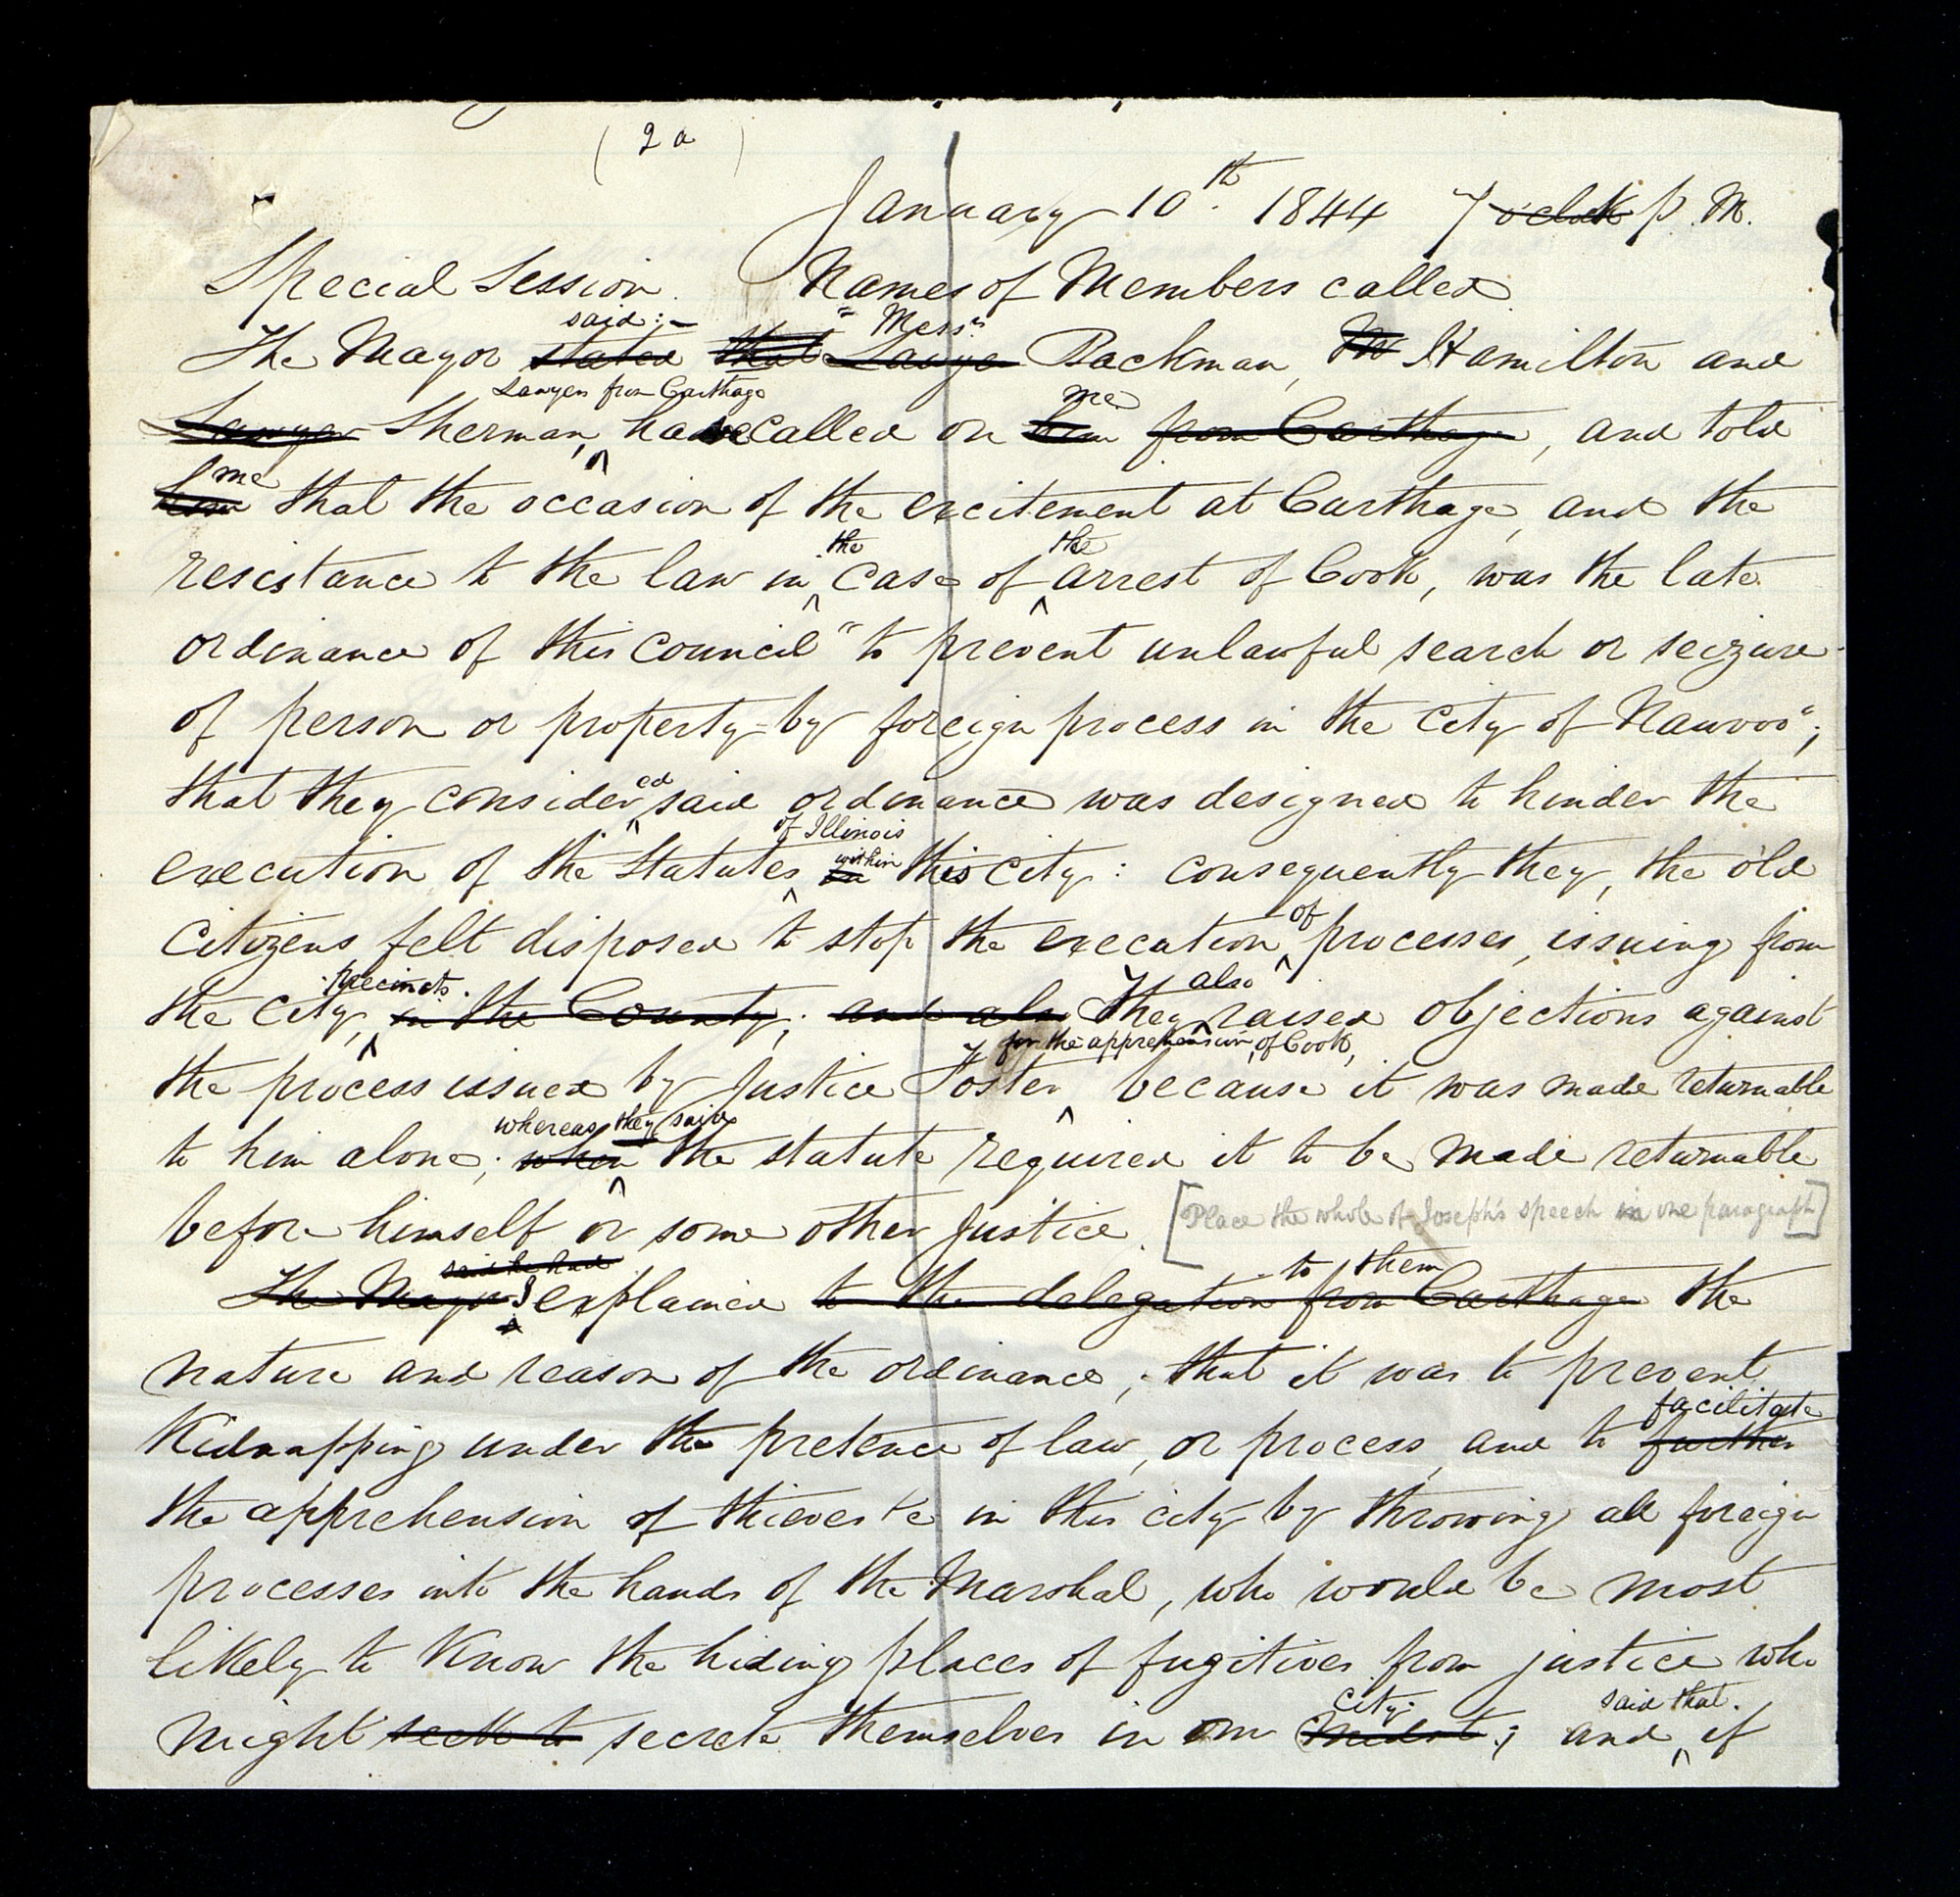 ( 2a )
January 10th. 1844 7 o'clock P. M.
Special Session. Names of Members called
said:- " Messrs
The Mayor stated that Lawyer Backman, Mr Hamilton and
Lawyers from Carthage me
Lawyer Sherman, have called on him from Carthage, and told
me
him that the occasion of the excitement at Carthage, and the
the the
resistance to the law in case of arrest of Cook, was the late
ordinance of this council "to prevent unlawful search or seizure
of person or property by foreign process in the city of Nauvoo";
ed
that they consider said ordinance was designed to hinder the
of Illinois within
execution of the Statutes in this city: consequently they, the old
of
citizens felt disposed to stop the execution processes, issuing from
precincts. also
the city, in the County; and also They raised objections against
for the apprehension of Cook,
the process issued by Justice Foster because it was made returnable
whereas they said
to him alone; when the statute required it to be made returnable
before himself or some other Justice. [Place the whole of Joseph's speech in one paragraph]
said he had to them
The Mayor I explained to the delegation from Carthage the
nature and reason of the ordinance; that it was to prevent
facilitate
Kidnapping under the pretence of law, or process, and to further
the apprehension of thieves &c in this city by throwing all foreign
processes into the hands of the Marshal, who would be most
likely to know the hiding places of fugitives from justice who
city. said that.
might seek to secrete themselves in our midst; and if